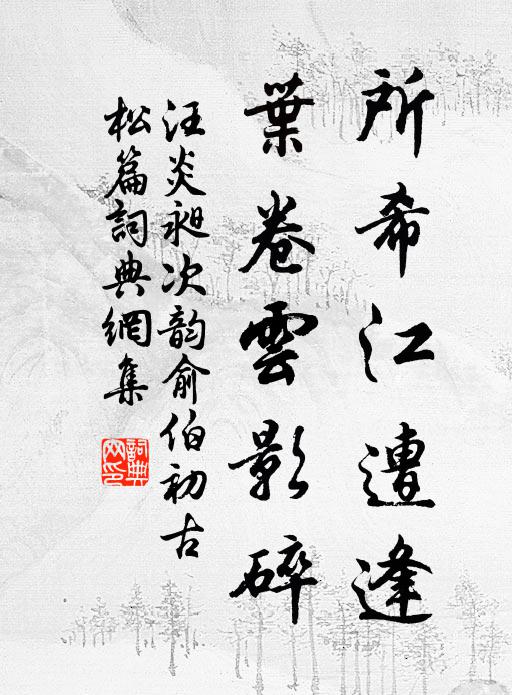 所希江遭逢
葉卷雲影碎
汪炎昶次韵俞伯初古
松篇詞典網集
詞典網印